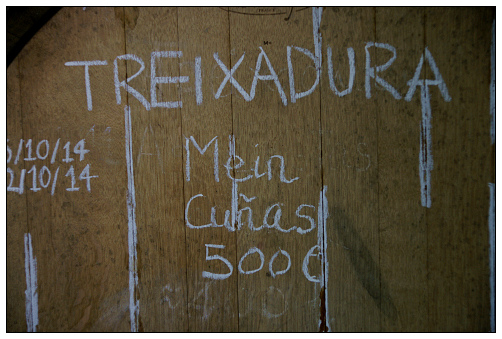 TREIXADURA
/10/14
/10/14
Mein
Cuñas
500€